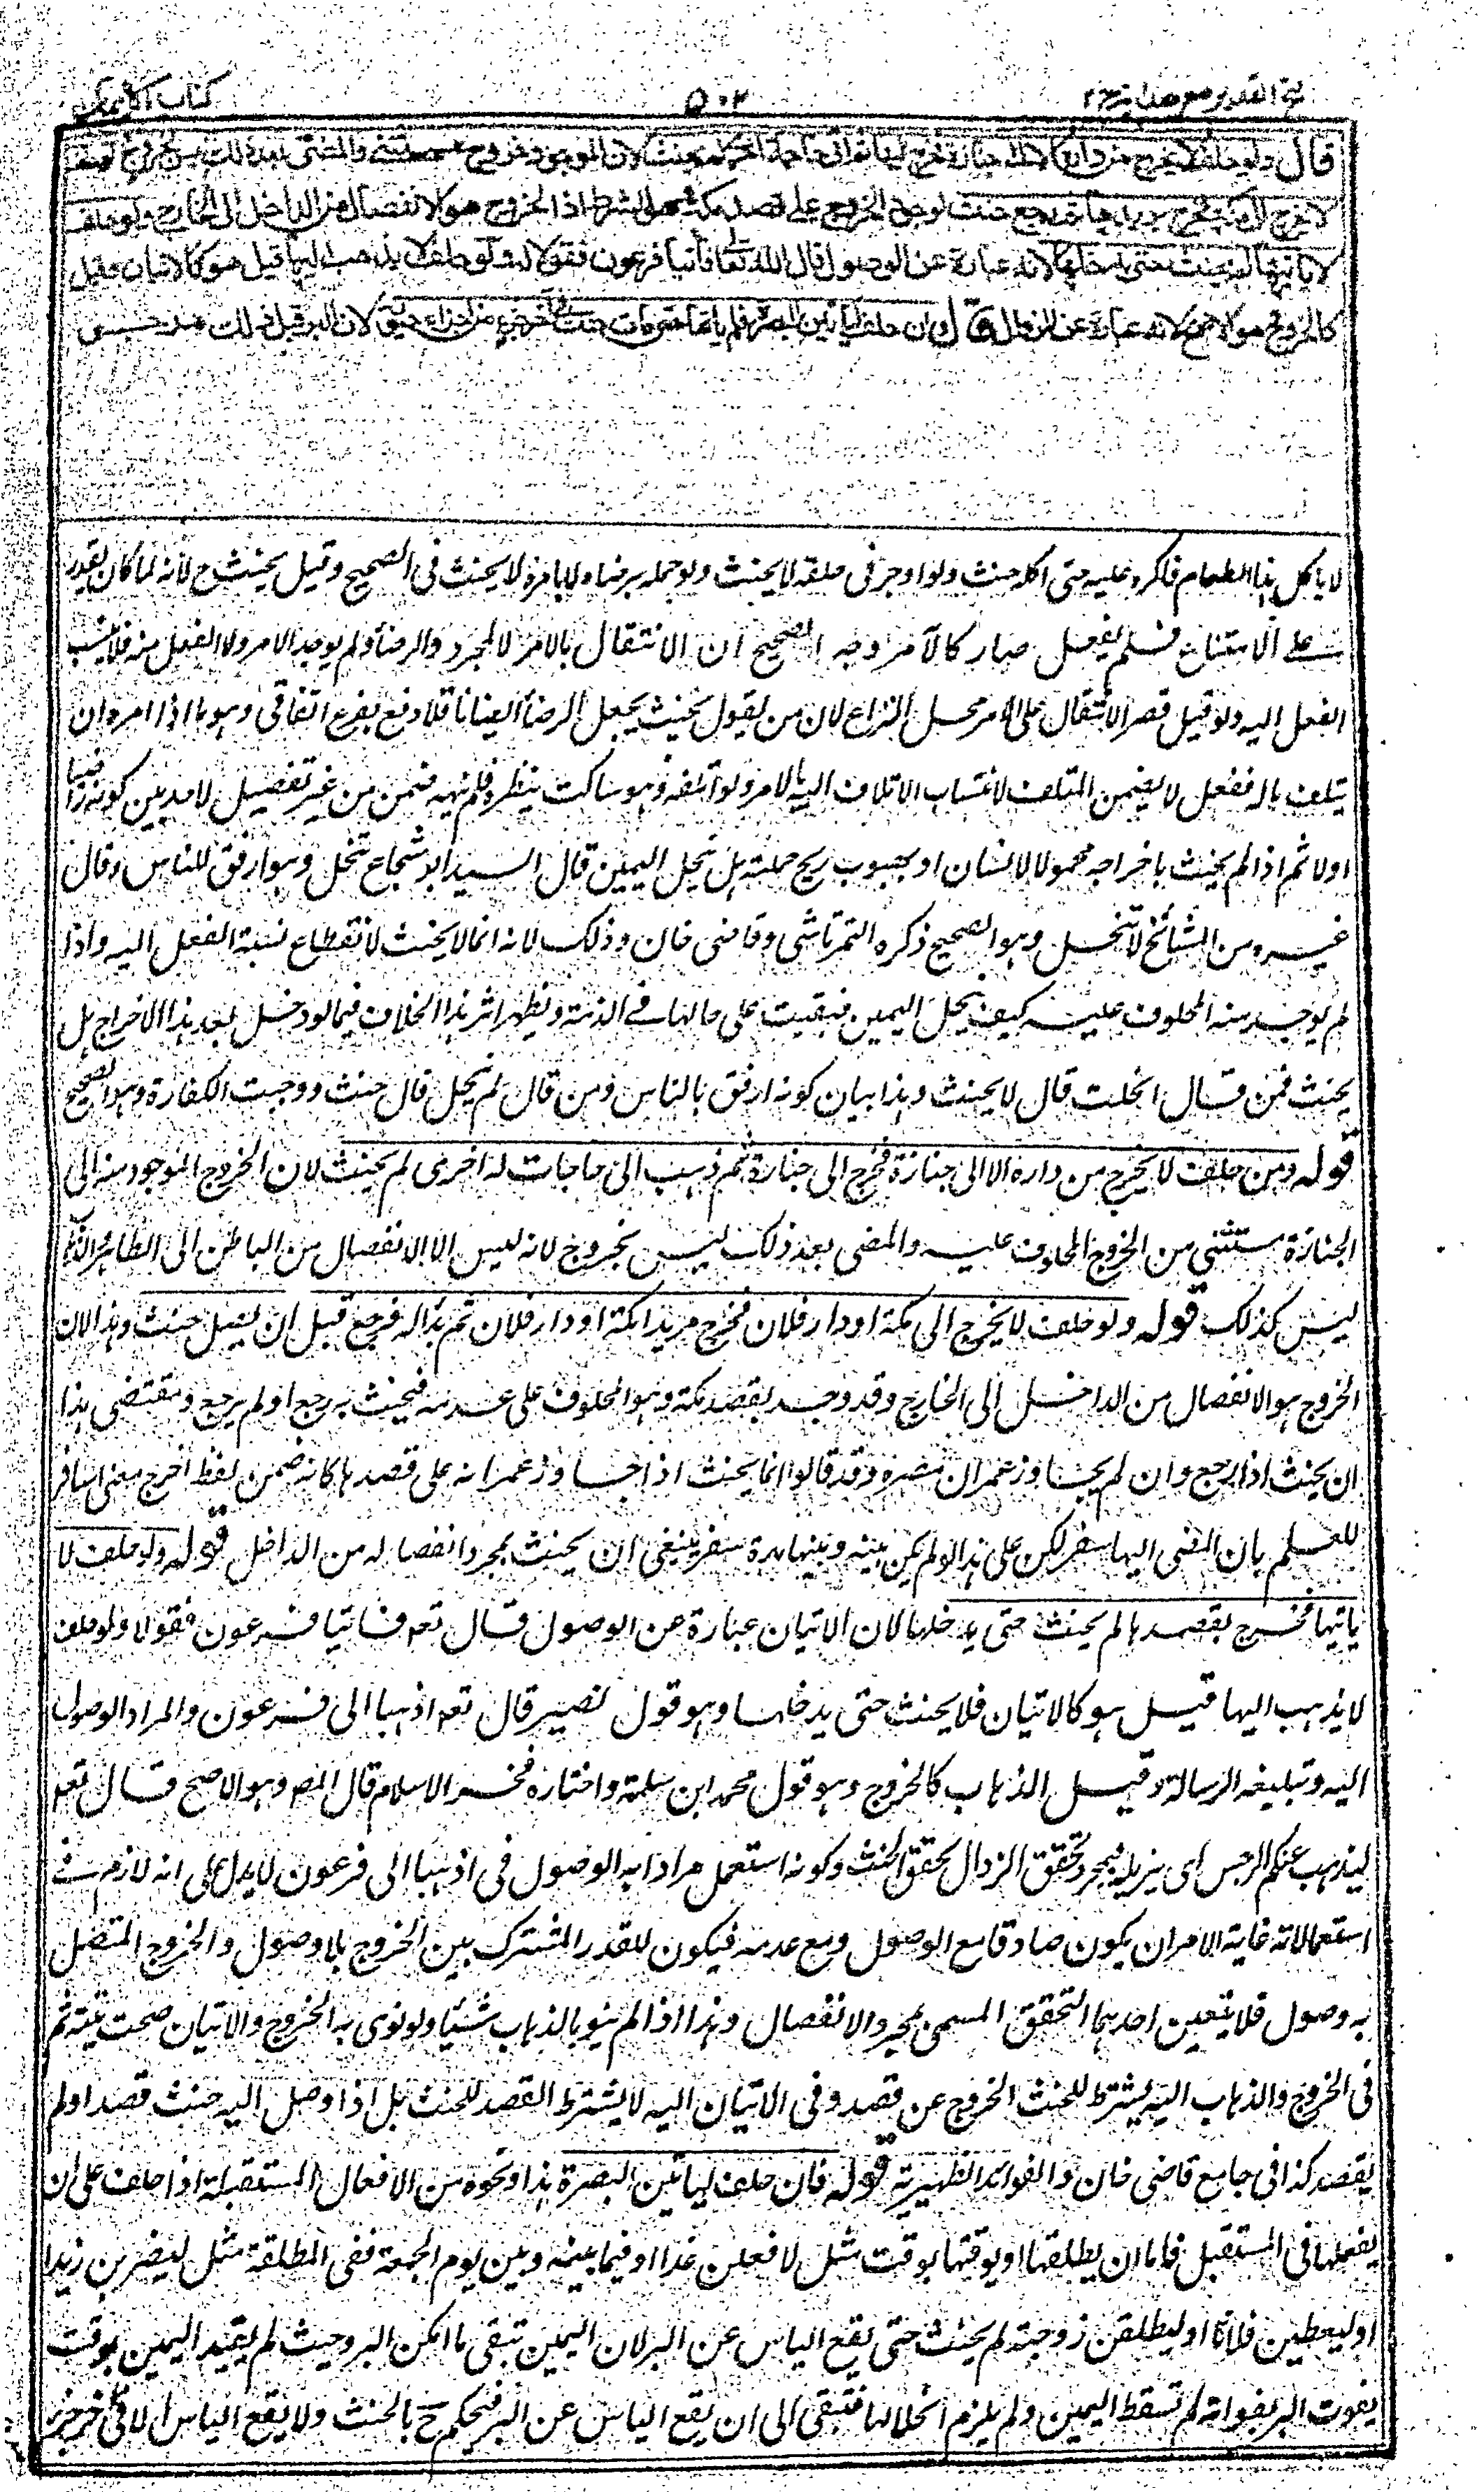 فتح القدير مع هدايه ج ٢ ٥٠٢ كتاب الايمان
قال ولو حلف لا يخرج من داره الا الى جنازة فخرج اليها ثم اتى حاجة اخرى لم يحنث لان الموجود خروج مستثنى والمضى بعد ذلك ليس بخروج ولو حلف
لا يخرج الى مكة فخرج يريدها ثم رجع حنث لوجود الخروج على قصد مكة وهو الشرط اذ الخروج هو الانفصال من الداخل الى الخارج ولو حلف
لا ياتيها لم يحنث حتى يدخلها لانه عبارة عن الوصول قال الله تعالى فأتيا فرعون فقولا له ولو حلف لا يذهب اليها قيل هو كالاتيان وقيل
كالخروج وهو الاصح لانه عبارة عن الزوال قال وان حلف لياتين البصرة فلم ياتها حتى مات حنث في آخر جزء من اجزاء حيوته لان البر قبل ذلك مرجو
لا ياكل هذا الطعام فاكره عليه حتى اكله حنث ولو اوجر فى حلقه لا يحنث ولو حمله برضاه لا بامره لا يحنث فى الصحيح وقيل يحنث ح لانه لما كان يقدر
على الامتناع فلم يفعل صار كالآمر وجه الصحيح ان الانتقال بالامر لا لمجرد والرضا ولم يوجد الامر ولا الفعل منه فلا ينسب
الفعل اليه ولو قيل قصر الانتقال على الامر محل النزاع لان من يقول يحنث يجعل الرضا ايضا ناقلا دفع بفرع اتفاقى وهو ما اذا امره ان
يتلف ماله ففعل لا يضمن المتلف لانتساب الاتلاف اليه بالامر ولو اتلفه وهو ساكت ينظره فلم ينهه ضمن من غير تفصيل لاحد بين كونه راضيا
اولا ثم اذا لم يحنث باخراجه محمولا لانسان او بهبوب ريح حملته هل تنحل اليمين قال السيد ابو شجاع تنحل وهو ارفق للناس وقال
غيره من المشائخ لا تنحل وهو الصحيح ذكره التمرتاشى وقاضى خان وذلك لانه انما لا يحنث لانقطاع نسبة الفعل اليه واذا
لم يوجد منه المحلوف عليه كيف تنحل اليمين فبقيت على حالها فى الذمة ويظهر اثر هذا الخلاف فيما لو دخل بعد هذا الاخراج هل
يحنث فمن قال انحلت قال لا يحنث وهذا بيان كونه ارفق بالناس ومن قال لم تنحل قال حنث ووجبت الكفارة وهو الصحيح
قوله ومن حلف لا يخرج من داره الا الى جنازة فخرج الى جنازة ثم ذهب الى حاجات له اخرى لم يحنث لان الخروج الموجود منه الى
الجنازة مستثنى من الخروج المحلوف عليه والمضى بعد ذلك ليس بخروج لانه ليس الا الانفصال من الباطن الى الظاهر والذهاب
ليس كذلك قوله ولو حلف لا يخرج الى مكة او دار فلان فخرج مريدا مكة او دار فلان ثم بدا له فرجع قبل ان يصل حنث وهذا لان
الخروج هو الانفصال من الداخل الى الخارج وقد وجد بقصد مكة وهو المحلوف على عدمه فيحنث به رجع او لم يرجع ومقتضى هذا
ان يحنث اذا رجع وان لم يجاوز عمران مصره وقد قالوا انما يحنث اذا جاوز عمرانه على قصدها كانه ضمن لفظ اخرج معنى اسافر
للعلم بان المضى اليها سفر لكن على هذا لو لم يكن بينه وبينها مدة سفر ينبغى ان يحنث بمجرد انفصاله من الداخل قوله ولو حلف لا
ياتيها فخرج بقصدها لم يحنث حتى يدخلها لان الاتيان عبارة عن الوصول قال تعه فاتيا فرعون فقولا ولو حلف
لا يذهب اليها قيل هو كالاتيان فلا يحنث حتى يدخلها وهو قول نصير قال تعه اذهبا الى فرعون والمراد الوصول
اليه وتبليغه الرسالة وقيل الذهاب كالخروج وهو قول محمد ابن سلمة واختاره فخر الاسلام قال المصه وهو الاصح قال تعه
ليذهب عنكم الرجس اى يزيله فبمجرد تحقق الزوال تحقق الحنث وكونه استعمل مرادا به الوصول فى اذهبا الى فرعون لا يدل على انه لازم فى
استعمالاته غاية الامر ان يكون صادقا مع الوصول ومع عدمه فيكون للقدر المشترك بين الخروج بلا وصول والخروج المتصل
به وصول فلا يتعين احدهما لتحقق المسمى بمجرد الانفصال وهذا اذا لم ينو بالذهاب شيئا ولو نوى به الخروج والاتيان صحت نيته ثم
فى الخروج والذهاب اليه يشترط للحنث الخروج عن قصد وفى الاتيان اليه لا يشترط القصد للحنث بل اذا وصل اليه حنث قصد او لم
يقصد كذا فى جامع قاضى خان والفوائد الظهيرية قوله فان حلف لياتين البصرة هذا ونحوه من الافعال المستقبلة اذا حلف على ان
يفعلها فى المستقبل فاما ان يطلقها او يوقتها بوقت مثل لافعلن غدا او فيما بينه وبين يوم الجمعة ففى المطلقة مثل ليضربن زيدا
او ليعطين فلانا او ليطلقن زوجته لم يحنث حتى يقع الياس عن البر لان اليمين تبقى ما امكن البر وحيث لم يقيد اليمين بوقت
يفوت البر بفواته لم تسقط اليمين ولم يلزم انحلالها فتبقى الى ان يقع الياس عن البر فيحكم ح بالحنث ولا يقع الياس الا فى آخر جزء